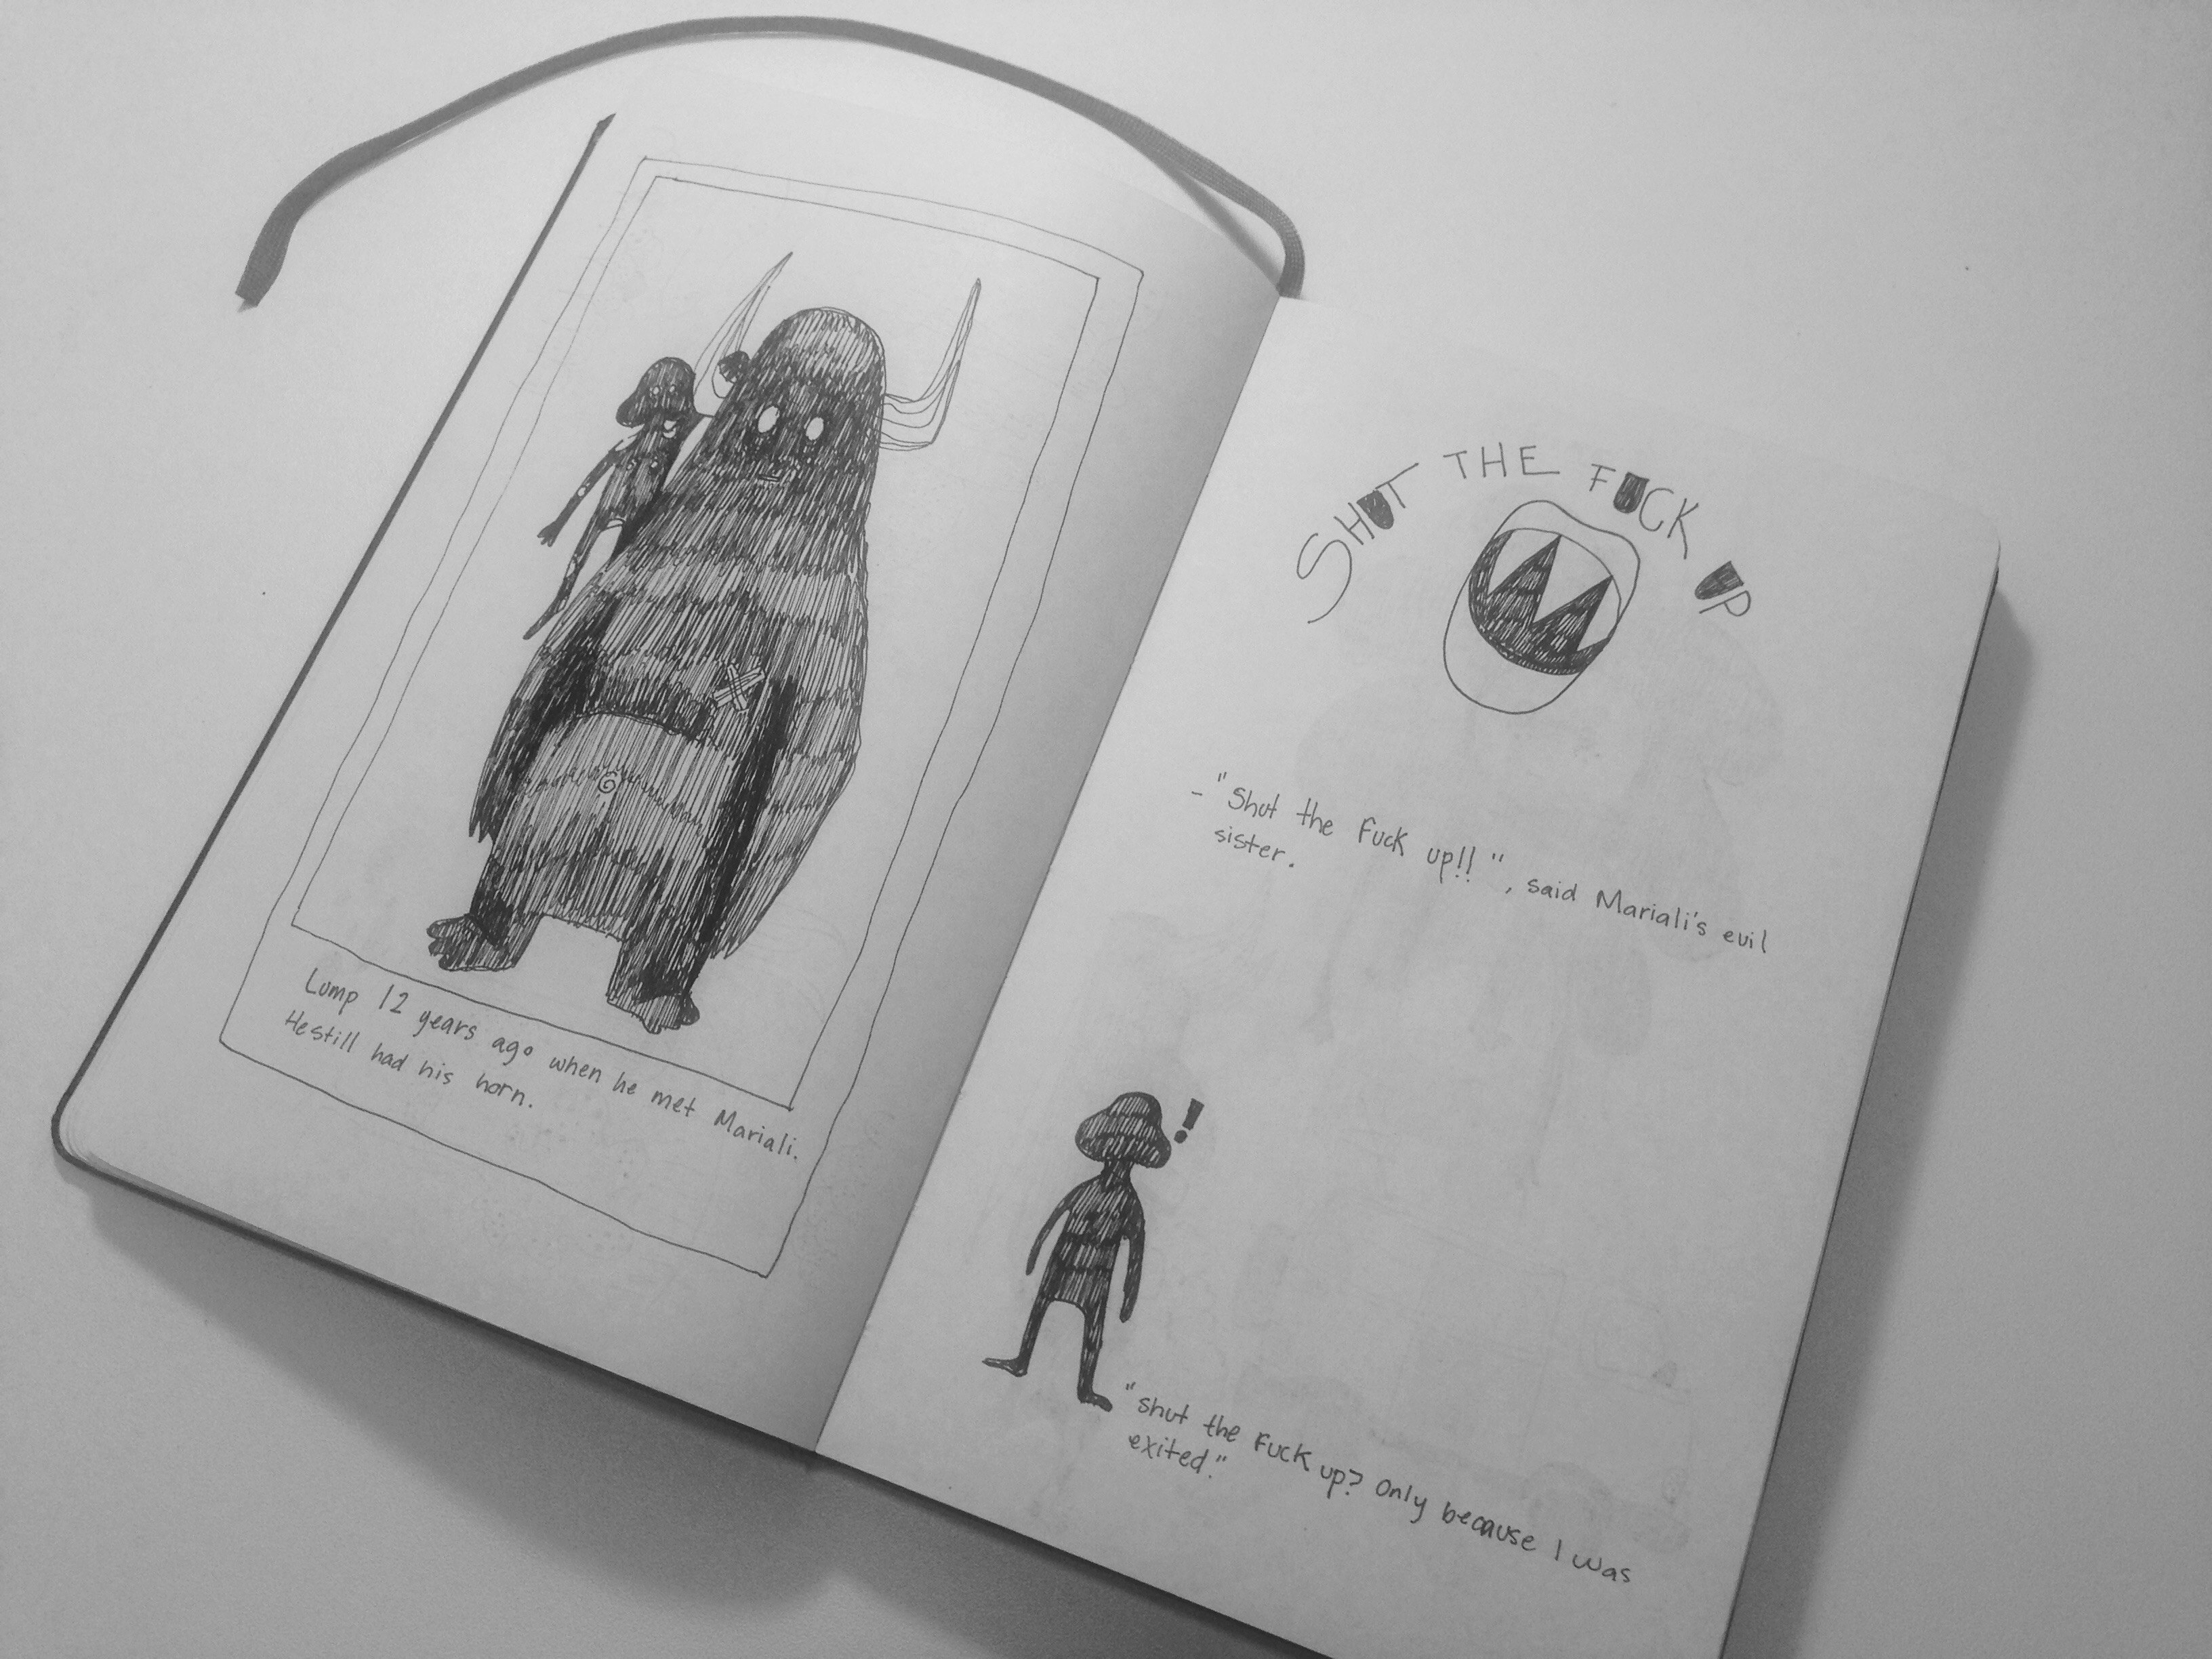 Lump 12 years ago when he met Mariali.
He still had his horn.
SHUT THE FUCK UP
- "Shut the Fuck up!!", said Mariali's evil
sister.
!
"Shut the Fuck up? Only because I was
exited."